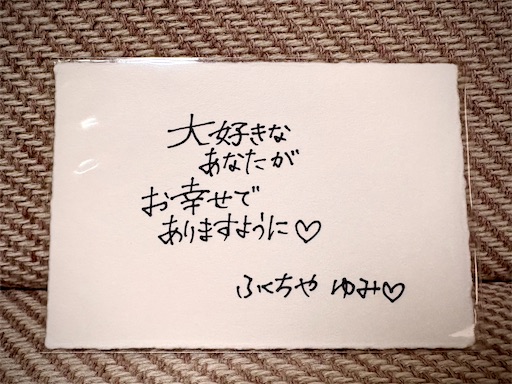 大好きな
あなたが
お幸せで
ありますように♡
ふくちや ゆみ♡